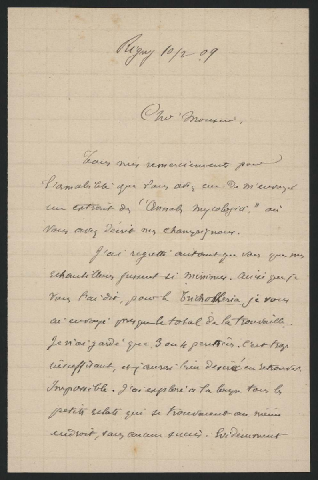 Rigny 10/2 09
Cher Monsieur,
Tous mes remerciements pour
l'amabilité que vous avez eue de m'envoyer
un extrait des "Annals mycologici" où
vous avez décrit mes champignons.
J'ai regretté autant que vous que mes
échantillons fussent si minimes. Ainsi que je
vous l'ai dit, pour le Trichothecia je vous
ai envoyé presque le total de la trouvaille.
Je n'ai gardé que 3 ou 4 peritheces. C'est trop
insuffisant, et j'aurais bien désiré en retrouver.
Impossible. J'ai exploré à la loupe tous les
petits éclats qui se trouvaient au même
endroit, sans aucun succès. Évidemment